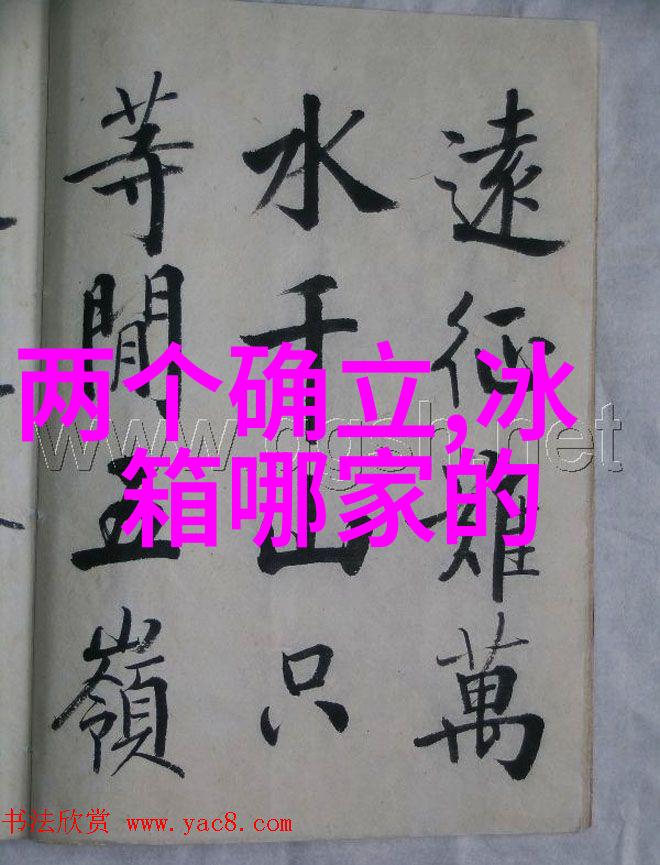 遠征難萬
水千山只
等閒五嶺
两个确立,冰
箱哪家的
www.dgsh.net
书法欣赏 www.yac8.com